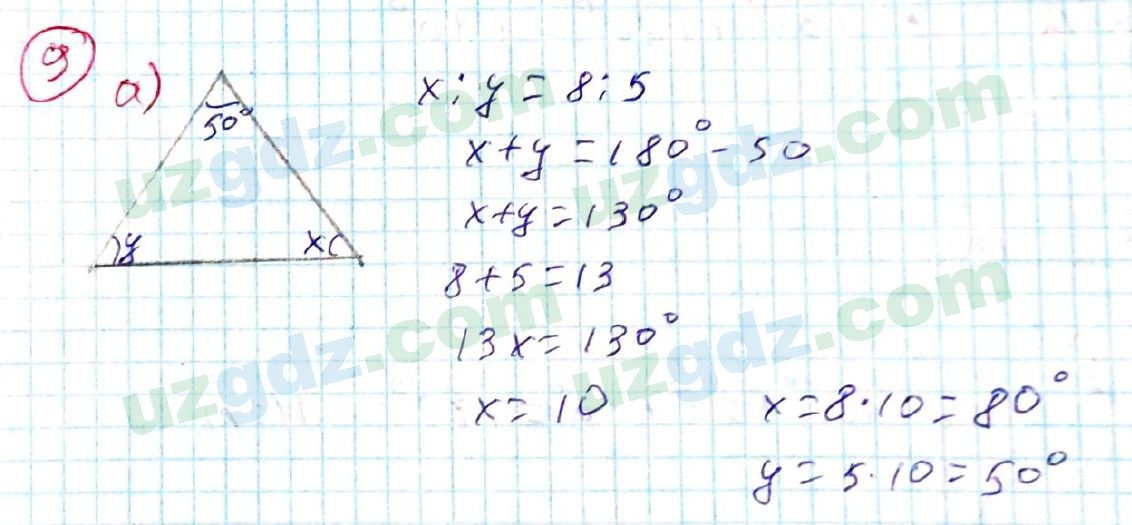 9
а)
50°
y
x
x : y = 8 : 5
x + y = 180° - 50
x + y = 130°
8 + 5 = 13
13x = 130°
x = 10
x = 8 · 10 = 80°
y = 5 · 10 = 50°
uzgdz.com
uzgdz.com
uzgdz.com
uzgdz.com